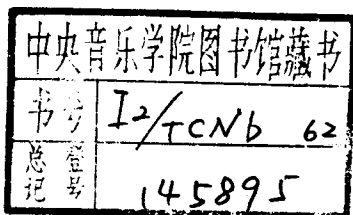 中央音乐学院图书馆藏书
书号 I2/TCNb 62
总登记号 145895